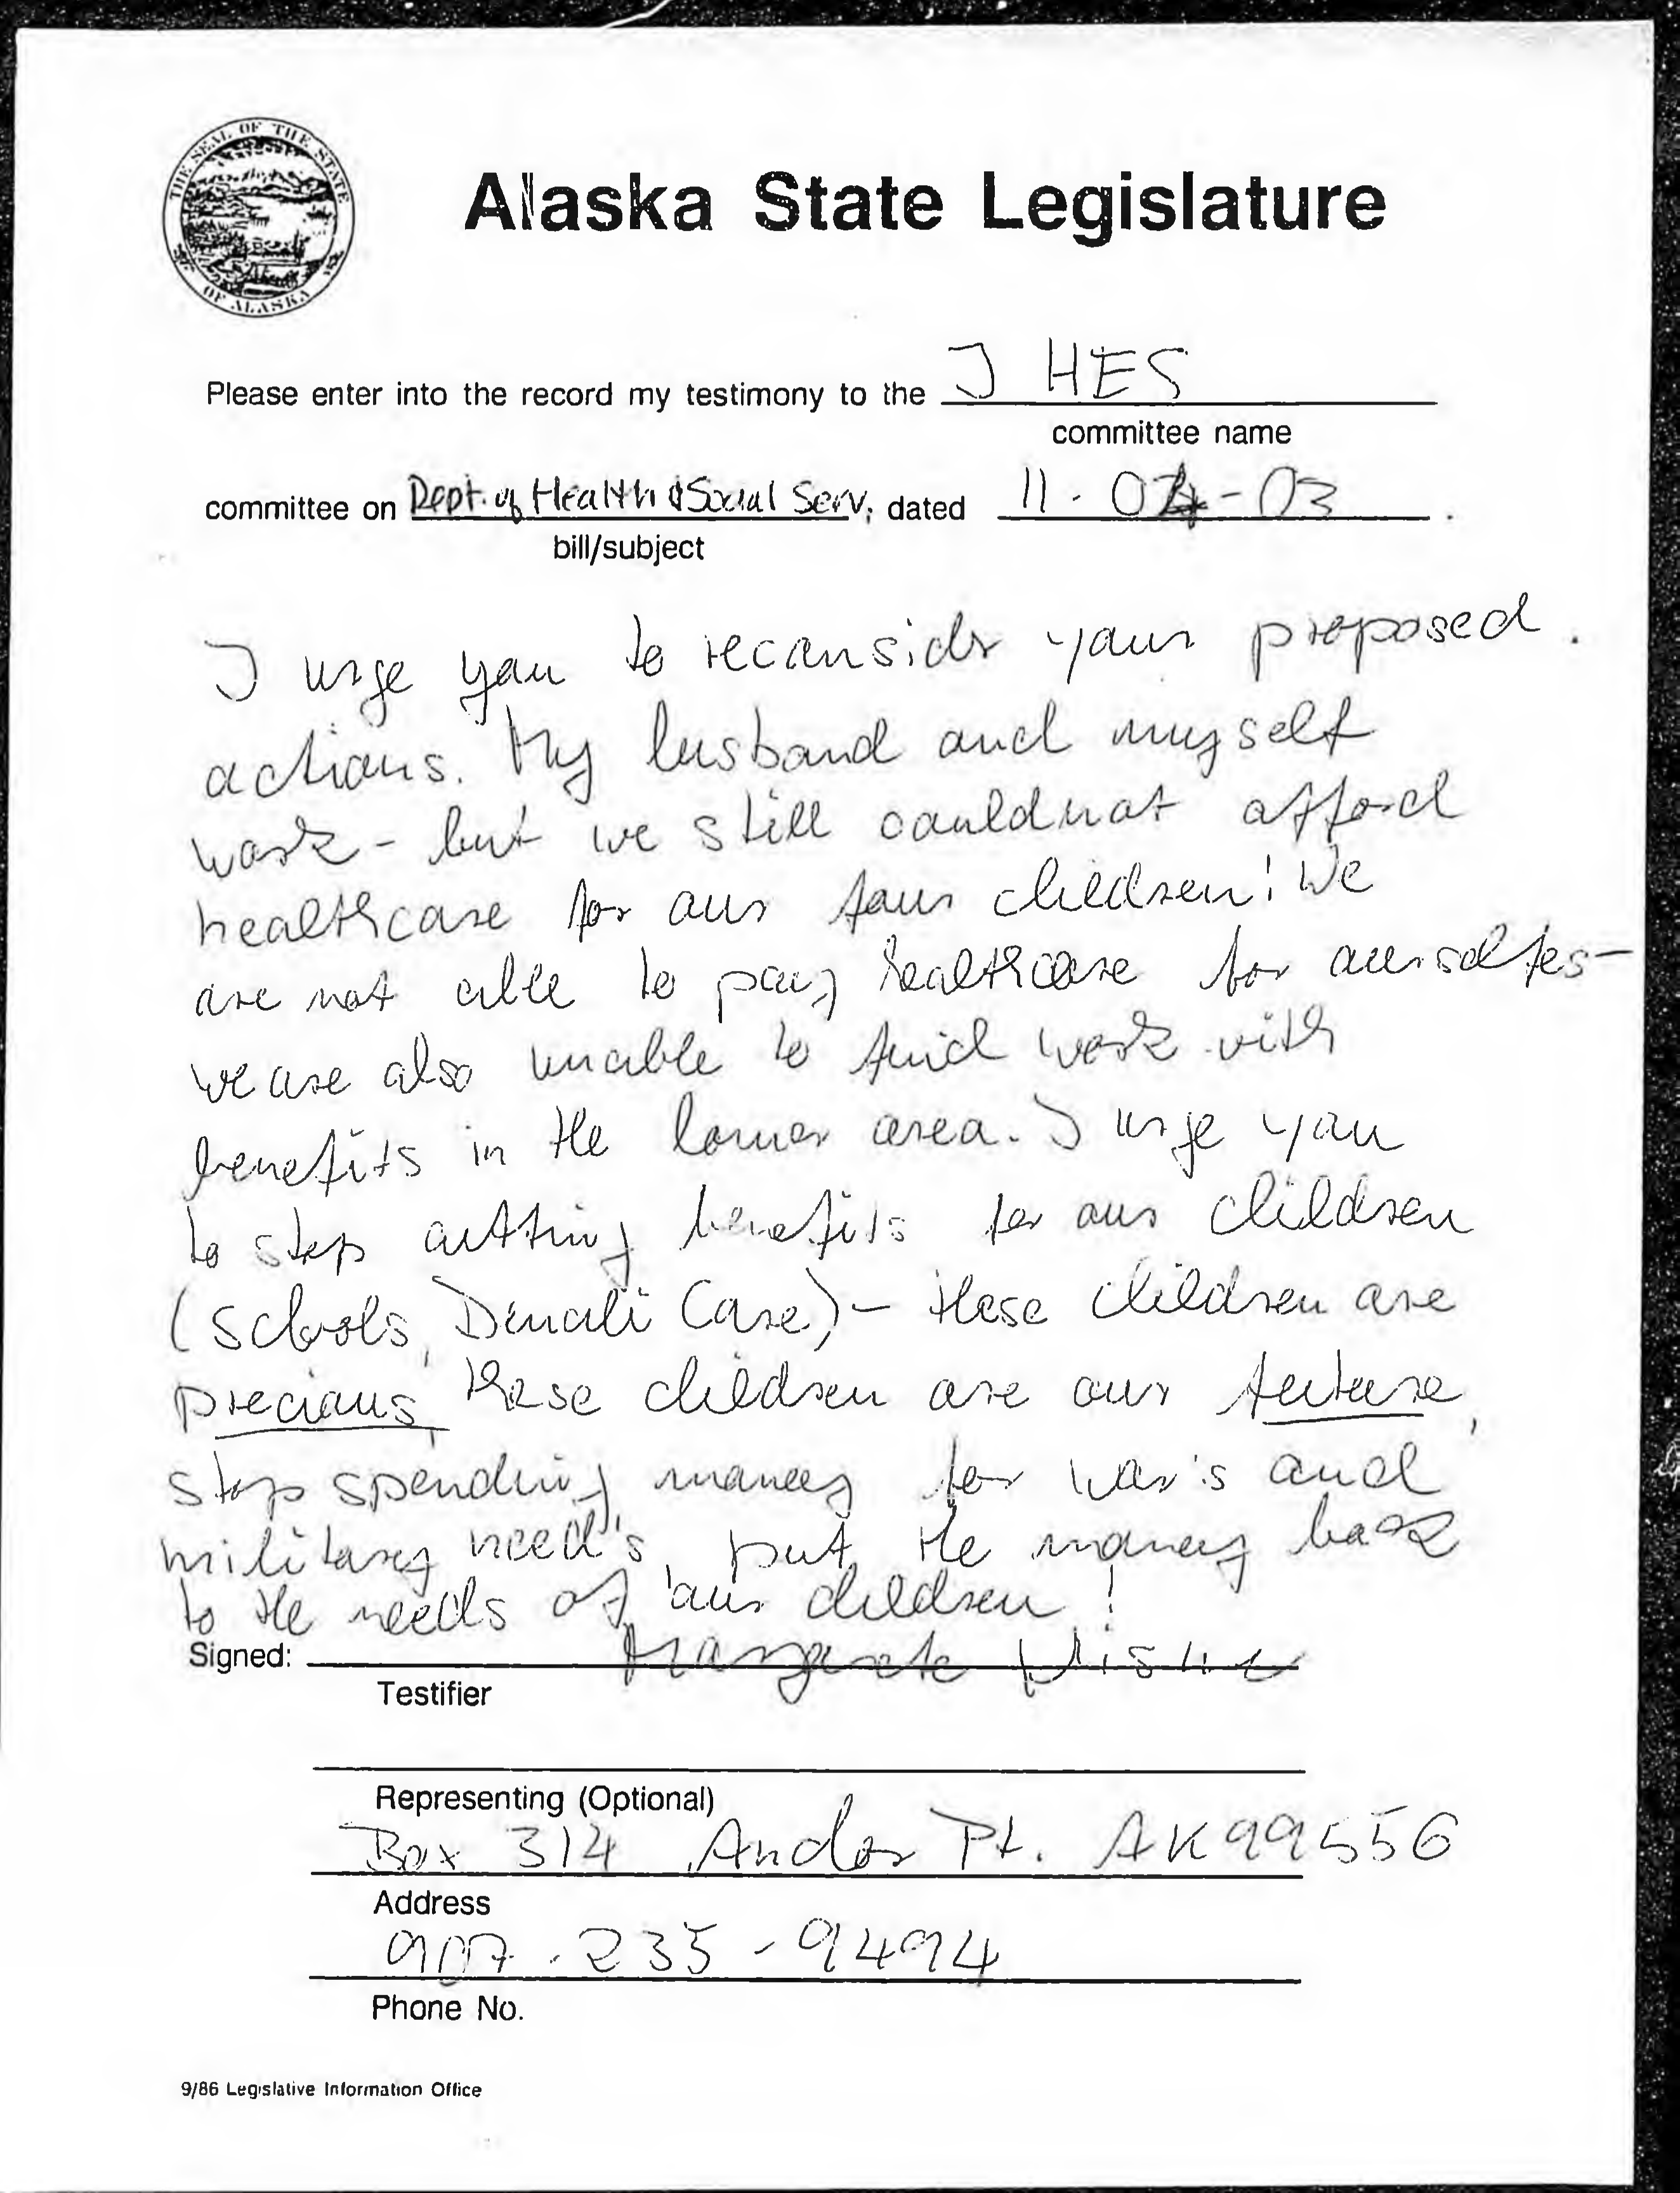 THE SEAL OF THE STATE
OF ALASKA
Alaska State Legislature
Please enter into the record my testimony to the J HES
committee name
committee on Dept. of Health & Social Serv, dated 11-04-03.
bill/subject
I urge you to reconsidr your proposed.
actions. My husband and myself
work - but we still couldnot afford
healthcare for our four children! We
are not able to pay healthcare for ourselfes-
we are also unable to find work with
benefits in the Homer area. I urge you
to stop cutting benefits for our children
(Schools, Denali Care) - these children are
precious, these children are our future,
stop spending money for war's and
military need's, put the money back
to the needs of our children!
Signed: Margarete
Testifier
Representing (Optional)
Box 314 Anchor Pt. AK 99556
Address
907-235-9494
Phone No.
9/86 Legislative Information Office